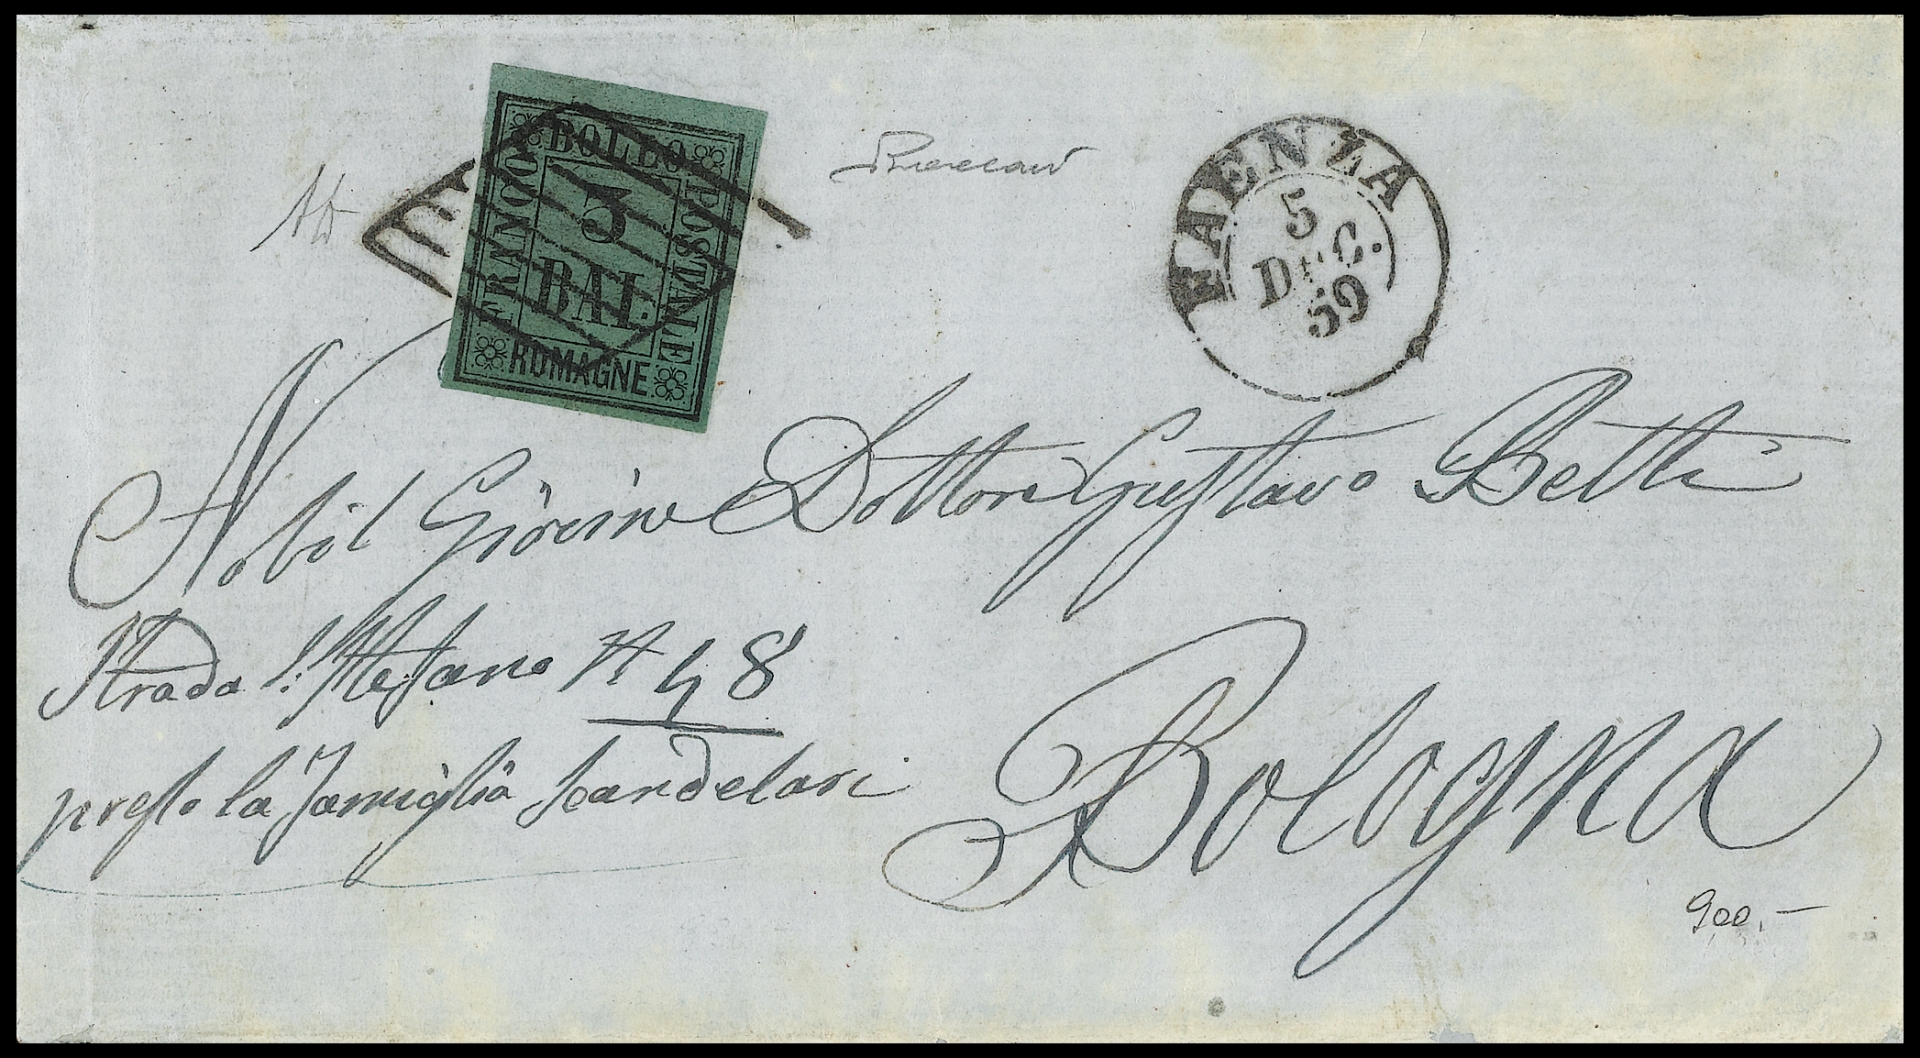 FRANCO BOLLO POSTALE
3
BAI.
ROMAGNE
FAENZA
5
DEC.
59
Nobil Giovine Dottore Gustavo Betti
Strada S. Stefano N 48
presso la Famiglia Candelari
Bologna
900.-